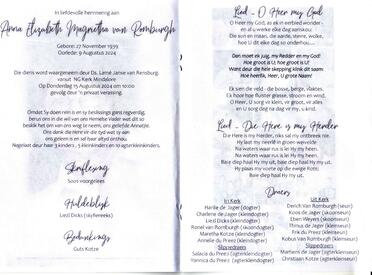 In liefdevolle herinnering aan
Anna Elizabeth Magrietha van Romburgh
Gebore: 27 November 1939
Oorlede: 9 Augustus 2024
Die diens word waargeneem deur Ds. Lamé Janse van Rensburg
vanuit NG Kerk Mindalore
Op Donderdag 15 Augustus 2024 om 10:00
gevolg deur 'n privaat verassing.
Omdat Sy doen rein is en sy beslissings gans regverdig,
berus ons in die wil van ons Hemelse Vader wat dit so
beskik het om van ons weg te neem, ons geliefde Annatjie.
Ons dank die Here vir die tyd wat sy aan
ons geleen is en sal haar altyd onthou.
Nagelaat deur haar 3 kinders, 5 kleinkinders en 10 agterkleinkinders.
Skriflesing
Soos voorgelees
Huldeblyk
Liezl Dicks (skyfiereeks)
Bedankings
Guts Kotze
Lied - O Heer my God
O Heer my God, as ek in eerbied wonder
en al u werke elke dag aanskou:
Die son en maan, die aarde, sterre, wolke,
hoe U dit elke dag so onderhou....
Dan moet ek juig, my Redder en my God!
Hoe groot is U, hoe groot is U!
Want deur die hele skepping klink dit saam:
Hoe heerlik, Heer, U grote Naam!
Ek sien die veld - die bosse, berge, vlaktes.
Ek hoor hoe fluister grasse, stroom en wind.
O Heer, U sorg vir klein, vir groot, vir alles
en U sorg dag na dag vir my, u kind.
Lied - Die Here is my Herder
Die Here is my Herder, niks sal my ontbreek nie.
Hy laat my neerlê in groen weivelde
Na waters waar rus is lei Hy my heen.
Na waters waar rus is lei Hy my heen.
Baie diep haal Hy my uit.
Baie diep haal Hy my uit,
Hy plaas my voete op die ewige Rots;
Baie diep haal Hy my uit.
Draers
In Kerk
Hanlie de Jager (dogter)
Charlene de Jager (kleindogter)
Liezl Dicks (kleindogter)
Ronel van Romburgh (skoondogter)
Maretha Kotze (kleindogter)
Annelie du Preez (kleindogter)
Slippedraers
Salacia du Preez (agterkleindogter)
Yannica du Preez (agterkleindogter)
Uit Kerk
Derich Van Romburgh (seun)
Koos de Jager (skoonseun)
Eben Weyers (skoonseun)
Thinus de Jager (kleinseun)
Erik du Preez (kleinseun)
Kobus Van Romburgh (kleinseun)
Slippedraers
Martiens de Jager (agterkleinseun)
Christiaan Kotze (agterkleinseun)